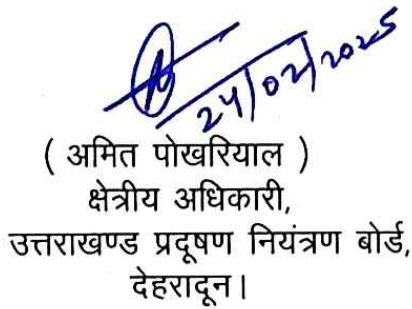 24/02/2025
( अमित पोखरियाल )
क्षेत्रीय अधिकारी,
उत्तराखण्ड प्रदूषण नियंत्रण बोर्ड,
देहरादून।